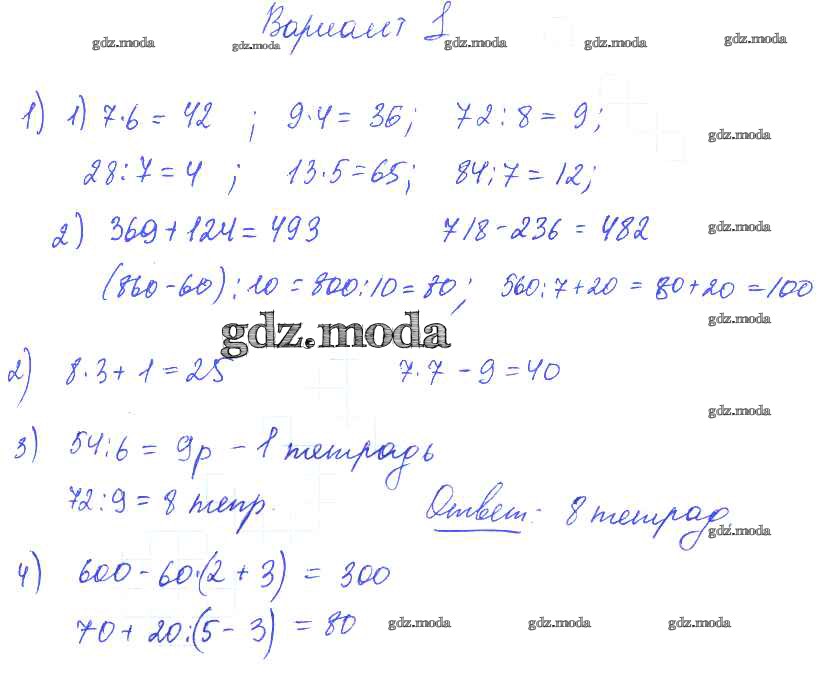 Вариант 1
gdz.moda gdz.moda gdz.moda gdz.moda gdz.moda
1) 1) 7·6 = 42 ; 9·4 = 36; 72 : 8 = 9;
gdz.moda
28 : 7 = 4 ; 13·5 = 65; 84 : 7 = 12;
2) 369 + 124 = 493 718 - 236 = 482
gdz.moda
(860 - 60) : 10 = 800 : 10 = 80; 560 : 7 + 20 = 80 + 20 = 100
gdz.moda
gdz.moda
2) 8·3 + 1 = 25 7·7 - 9 = 40
gdz.moda
3) 54 : 6 = 9р - 1 тетрадь
72 : 9 = 8 тетр. Ответ: 8 тетрад
gdz.moda
4) 600 - 60·(2 + 3) = 300
70 + 20 : (5 - 3) = 80
gdz.moda gdz.moda gdz.moda